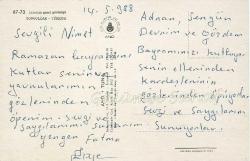 67-73
14.5.988
Sevgili Nimet
Ramazan bayramını
Kutlar senin ve
yavrularının
gözlerinden
öperim. sevgi ve
saygılarımı sunarım.
yengen Fatma
Adnan, Sengün
Devrim ve Gözdem
Bayramınızı kutluyor
senin ellerinden
Kardeşlerinin
gözlerinden öpüyorlar
Sevgi ve Saygılarını
Sunuyorlar.